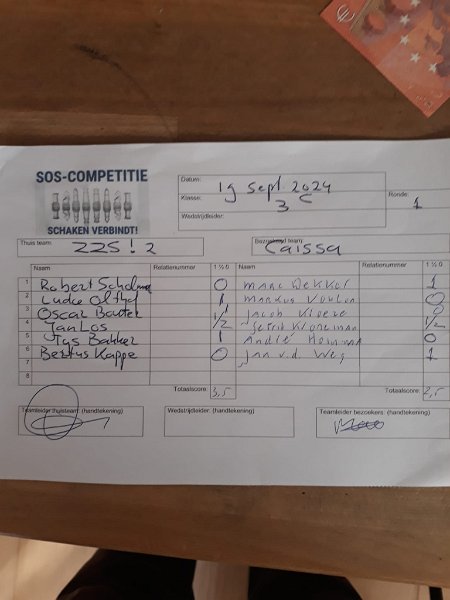 SOS-COMPETITIE
SCHAKEN VERBINDT!
Datum: 19 sept 2024
Klasse: 3C
Ronde: 1
Wedstrijdleider:
Thuis team: ZZS! 2
Bezoekend team: Caissa
Naam Relatienummer 1 ½ 0 Naam Relatienummer 1 ½ 0
1 Robert 0 Marc Dekker 1
2 Luuk Olthof 1 Markus 0
3 Oscar 1 Jacob 0
4 Jan Los 1/2 Gerrit 1/2
5 Tys Bakker 1 André 0
6 Bertus Kappe 0 Jan v.d. Weg 1
7
8
Totaalscore: 3,5 Totaalscore: 2,5
Teamleider thuisteam: (handtekening) Wedstrijdleider: (handtekening) Teamleider bezoekers: (handtekening)